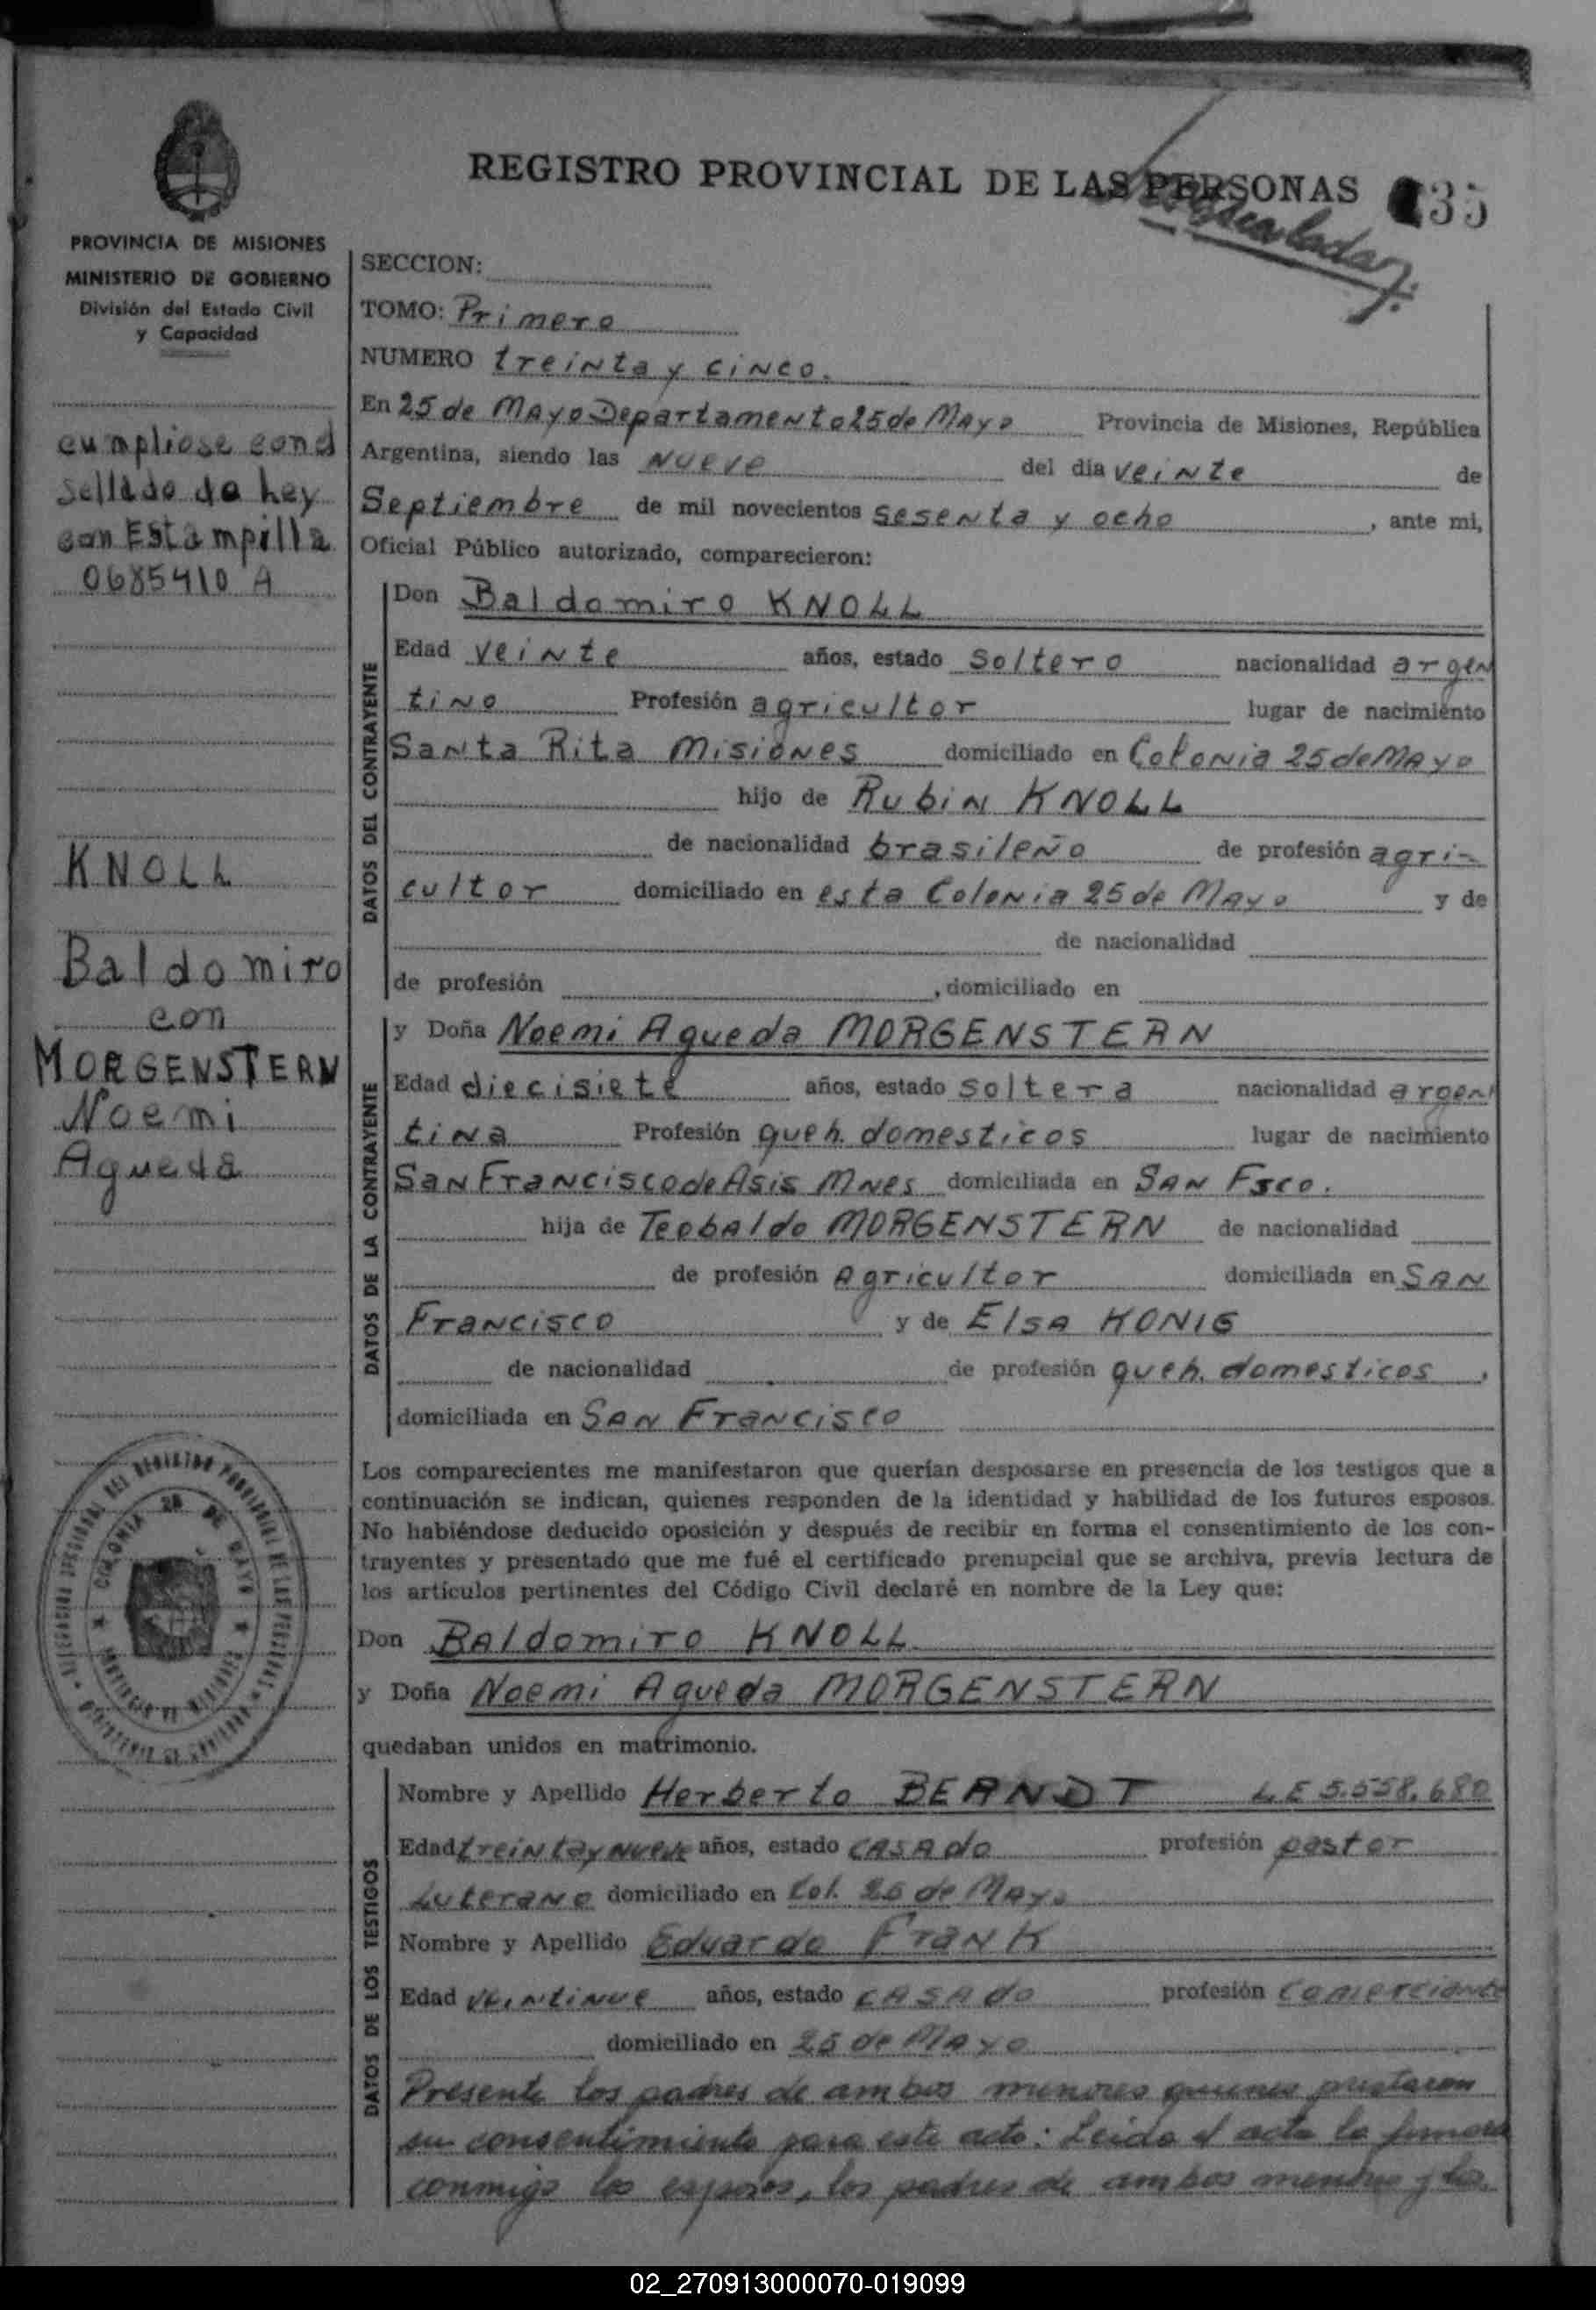 REGISTRO PROVINCIAL DE LAS PERSONAS
35
PROVINCIA DE MISIONES
MINISTERIO DE GOBIERNO
División del Estado Civil
y Capacidad
cumpliose con el
sellado de ley
con Estampilla
0685410 A
KNOLL
Baldomiro
con
MORGENSTERN
Noemi
Agueda
SECCION:
TOMO: Primero
NUMERO treinta y cinco.
En 25 de Mayo Departamento 25 de Mayo Provincia de Misiones, República
Argentina, siendo las Nueve del día veinte de
Septiembre de mil novecientos sesenta y ocho, ante mi,
Oficial Público autorizado, comparecieron:
DATOS DEL CONTRAYENTE
Don Baldomiro KNOLL
Edad veinte años, estado soltero nacionalidad argen
tino Profesión agricultor lugar de nacimiento
Santa Rita Misiones domiciliado en Colonia 25 de Mayo
hijo de Rubin KNOLL
de nacionalidad brasileño de profesión agri-
cultor domiciliado en esta Colonia 25 de Mayo y de
de nacionalidad
de profesión , domiciliado en
DATOS DE LA CONTRAYENTE
y Doña Noemi Agueda MORGENSTERN
Edad diecisiete años, estado soltera nacionalidad argen
tina Profesión queh. domesticos lugar de nacimiento
San Francisco de Asis Mnes domiciliada en SAN Fsco.
hija de Teobaldo MORGENSTERN de nacionalidad
de profesión Agricultor domiciliada en SAN
Francisco y de Elsa KONIG
de nacionalidad de profesión queh. domesticos,
domiciliada en SAN Francisco
Los comparecientes me manifestaron que querían desposarse en presencia de los testigos que a
continuación se indican, quienes responden de la identidad y habilidad de los futuros esposos.
No habiéndose deducido oposición y después de recibir en forma el consentimiento de los con-
trayentes y presentado que me fué el certificado prenupcial que se archiva, previa lectura de
los artículos pertinentes del Código Civil declaré en nombre de la Ley que:
Don BAldomiro KNOLL
y Doña Noemi Agueda MORGENSTERN
quedaban unidos en matrimonio.
DATOS DE LOS TESTIGOS
Nombre y Apellido Herberto BERNDT L E 5.558.680
Edad treinta y nueve años, estado CASAdo profesión pastor
Luterano domiciliado en Col. 25 de Mayo
Nombre y Apellido Eduardo FranK
Edad veintinue años, estado CASAdo profesión Comerciante
domiciliado en 25 de Mayo
Presente los padres de ambos menores quienes prestaron
su consentimiento para este acto: Leida el acta la firman
conmigo los esposos, los padres de ambos menores y los
02_270913000070-019099